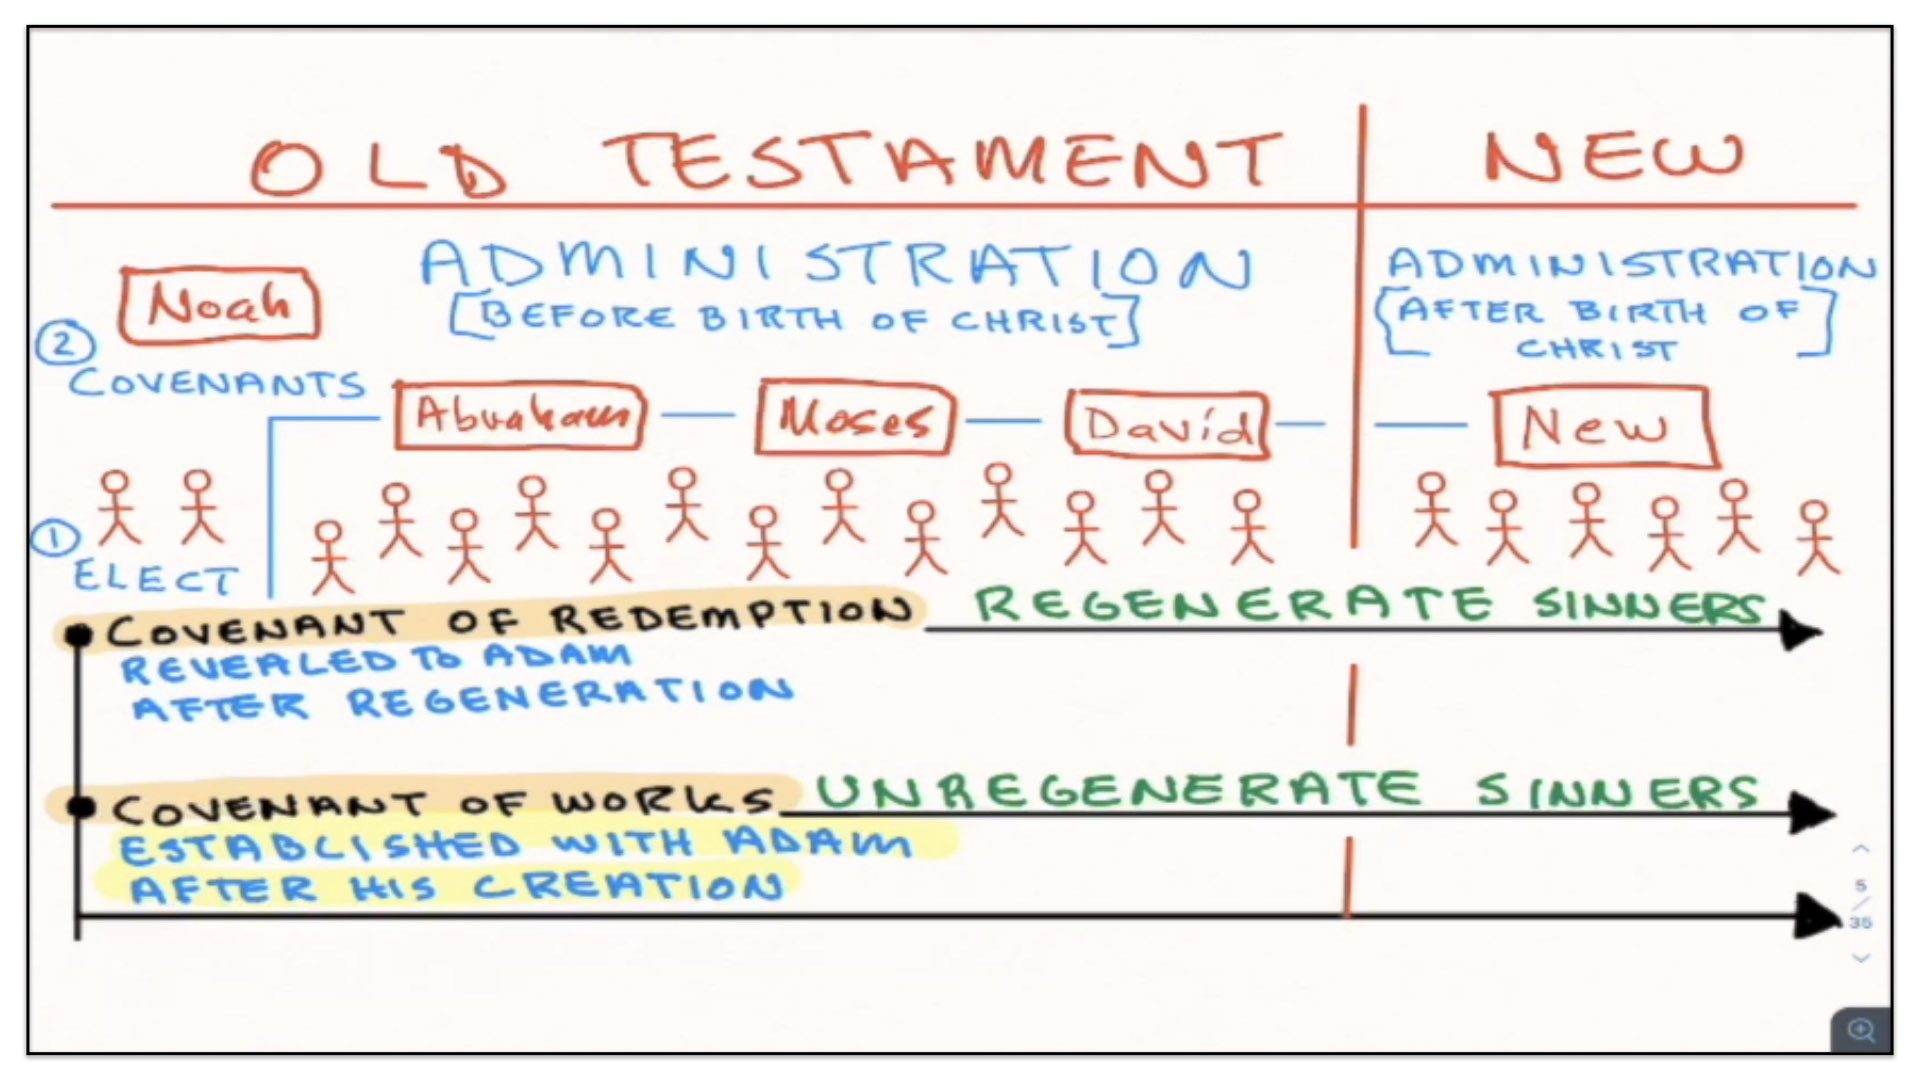 OLD TESTAMENT
NEW
Noah
ADMINISTRATION
[BEFORE BIRTH OF CHRIST]
ADMINISTRATION
[AFTER BIRTH OF
CHRIST]
2
COVENANTS
Abraham
Moses
David
New
1
ELECT
COVENANT OF REDEMPTION
REGENERATE SINNERS
REVEALED TO ADAM
AFTER REGENERATION
COVENANT OF WORKS
UNREGENERATE SINNERS
ESTABLISHED WITH ADAM
AFTER HIS CREATION
5
/
35